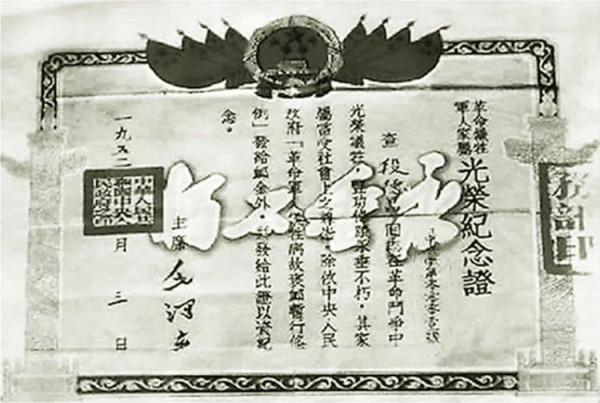 革命犧牲
軍人家屬
光榮紀念證
查段德昌同志在革命鬥爭中
光榮犧牲，豐功偉績永垂不朽，其家
屬當受社會上之尊崇。除依中央人民
政府「革命軍人犧牲病故褒卹暫行條
例」發給卹金外，並發給此證以資紀
念。
主席 毛澤东
一九五二 月 三 日
中華人民共
和國中央人
民政府之印
務部印